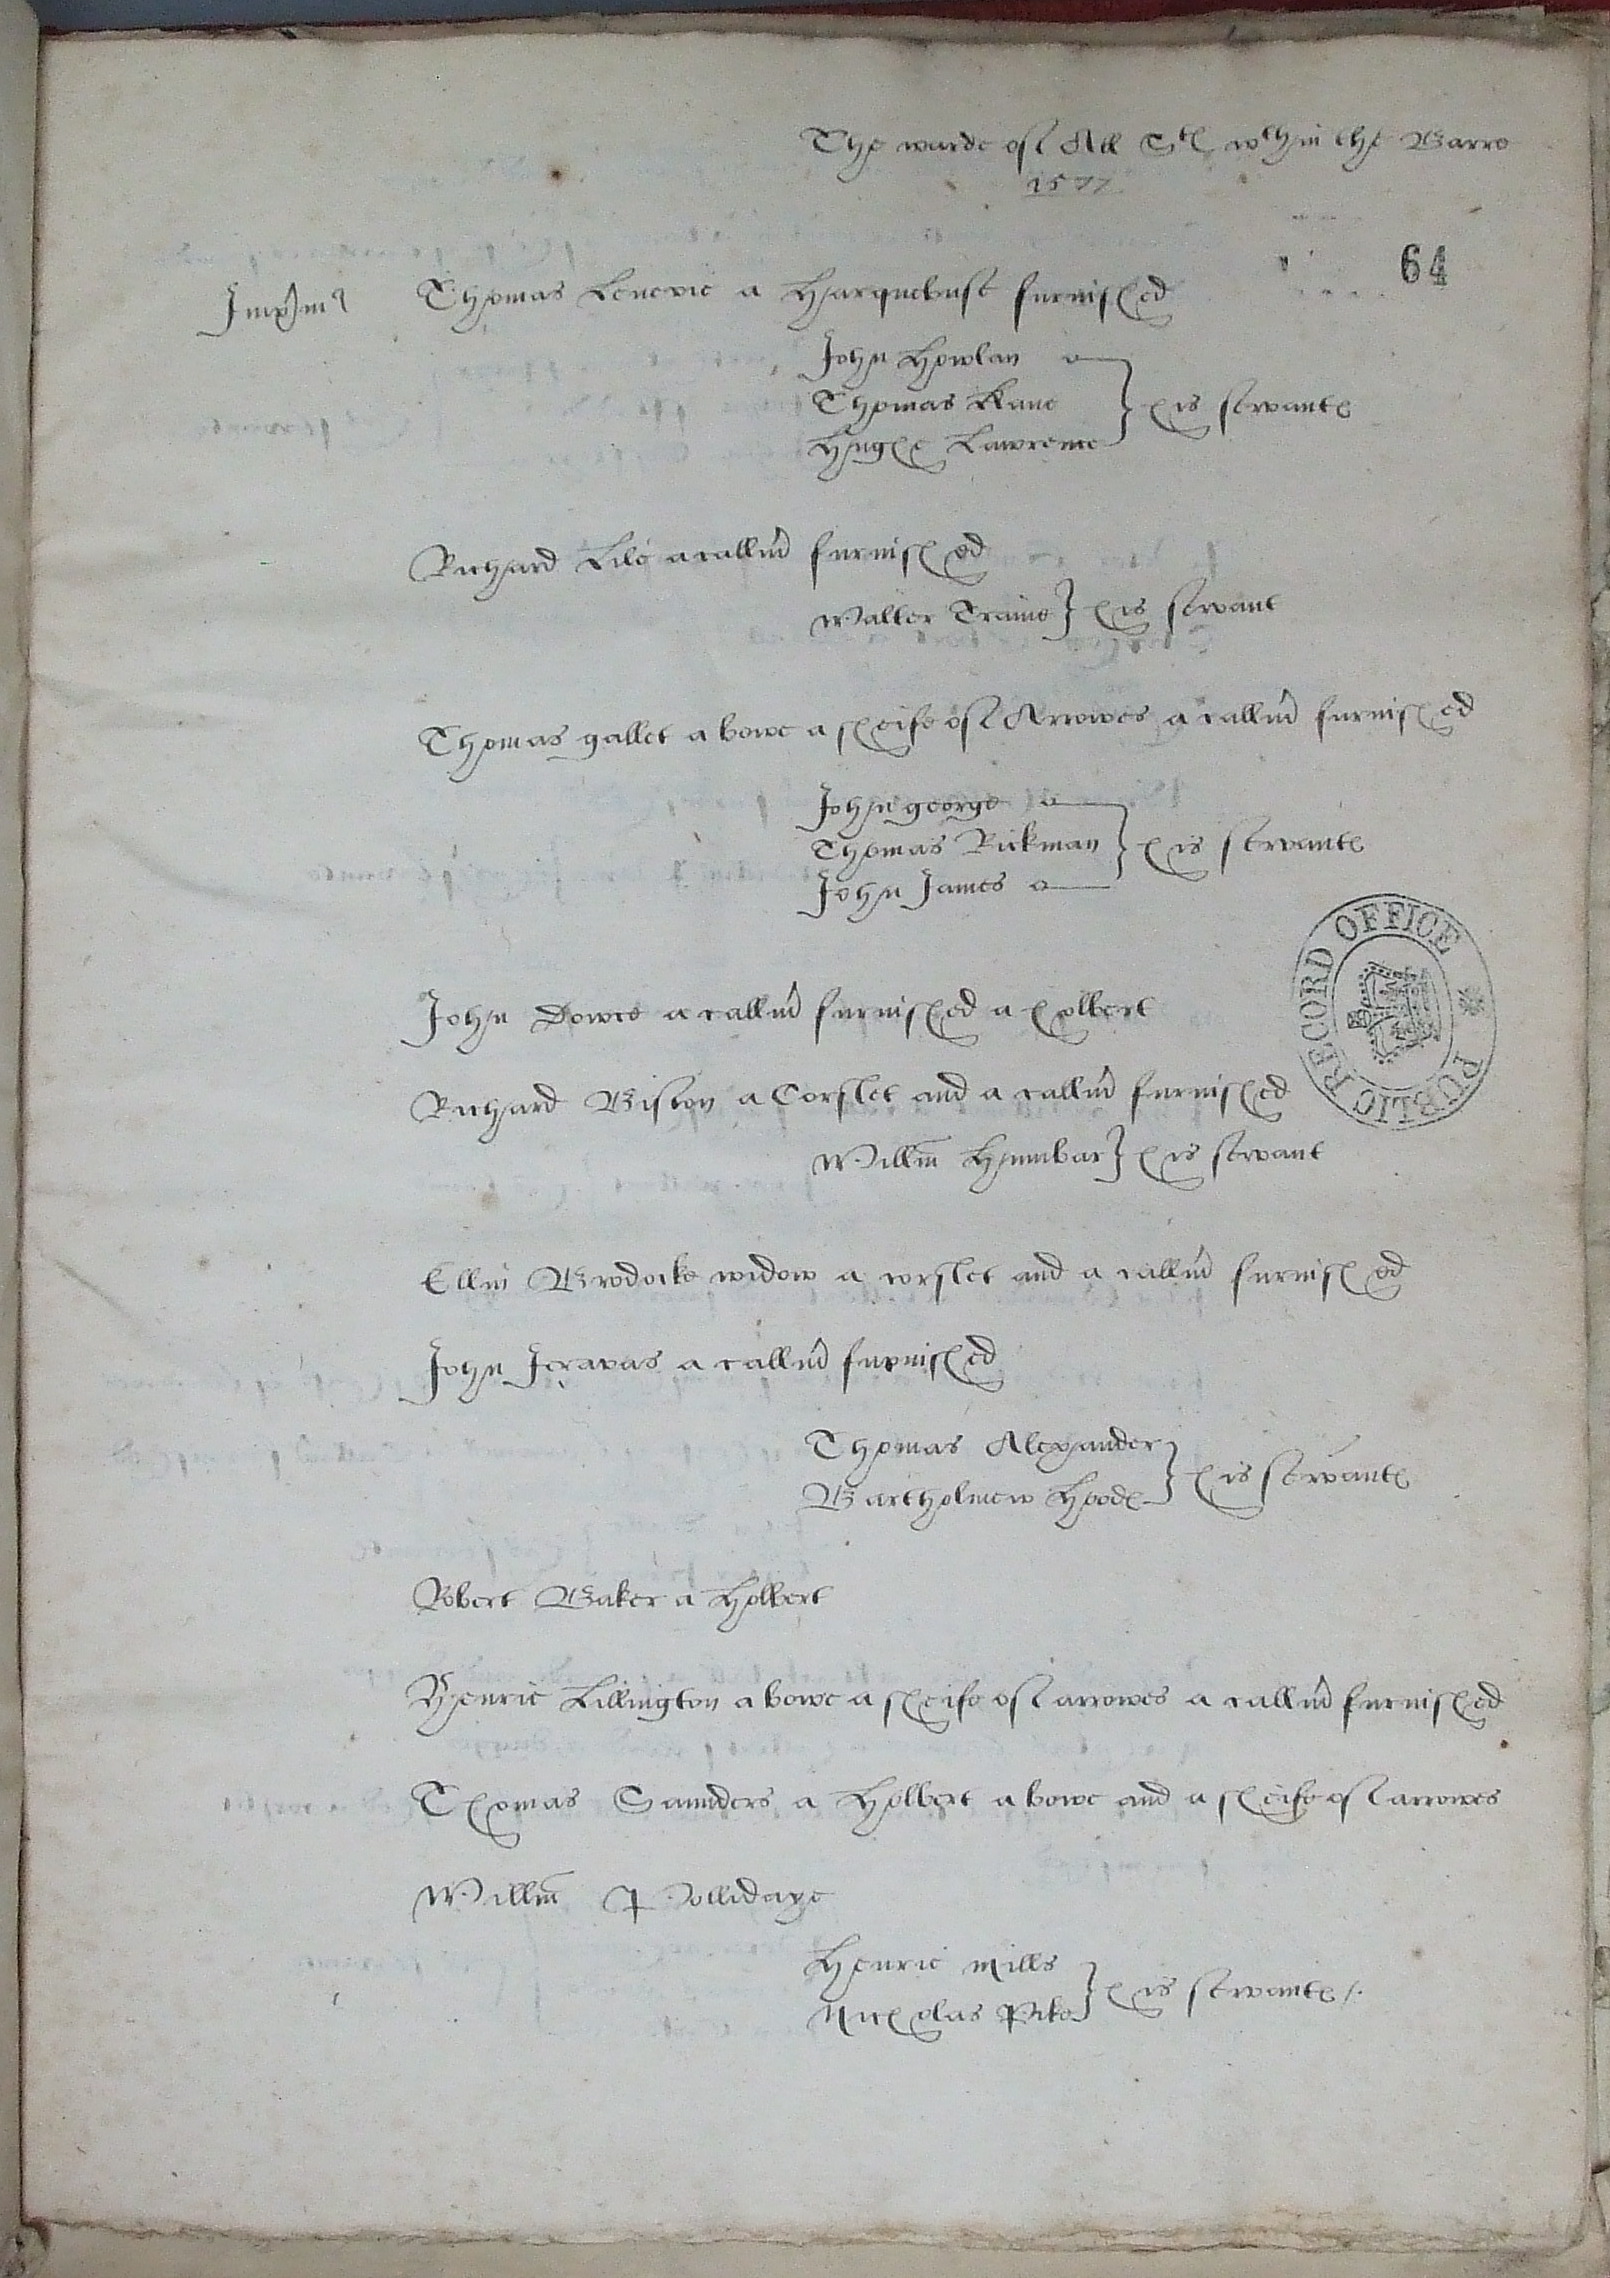 The warde of All Stes wthin the Barre
1577
64
Imprimis Thomas Lenerie a Harquebust furnished
John Howlan
Thomas Kane
Hughe Lawrence } his servantes
Richard Lile a callivr furnished
Walter Traine } his servant
Thomas gallet a bowe a sheife of Arrowes a callivr furnished
John george
Thomas Rickman } his servantes
John James
John Dowce a callivr furnished a holbert
Richard Biston a Corslet and a callivr furnished
Willm Humbar } his servant
Ellin Brodocke widow a corslet and a callivr furnished
John Jeravas a callivr furnished
Thomas Alexander
Bartholmew Hoode } his servantes
Robert Baker a Holbert
Henrie Lillington a bowe a sheife of arrowes a callivr furnished
Thomas Saunders a Holbert a bowe and a sheife of arrowes
Willm Hollidaye
Henrie Mills
Nicholas Pike } his servantes
PUBLIC RECORD OFFICE